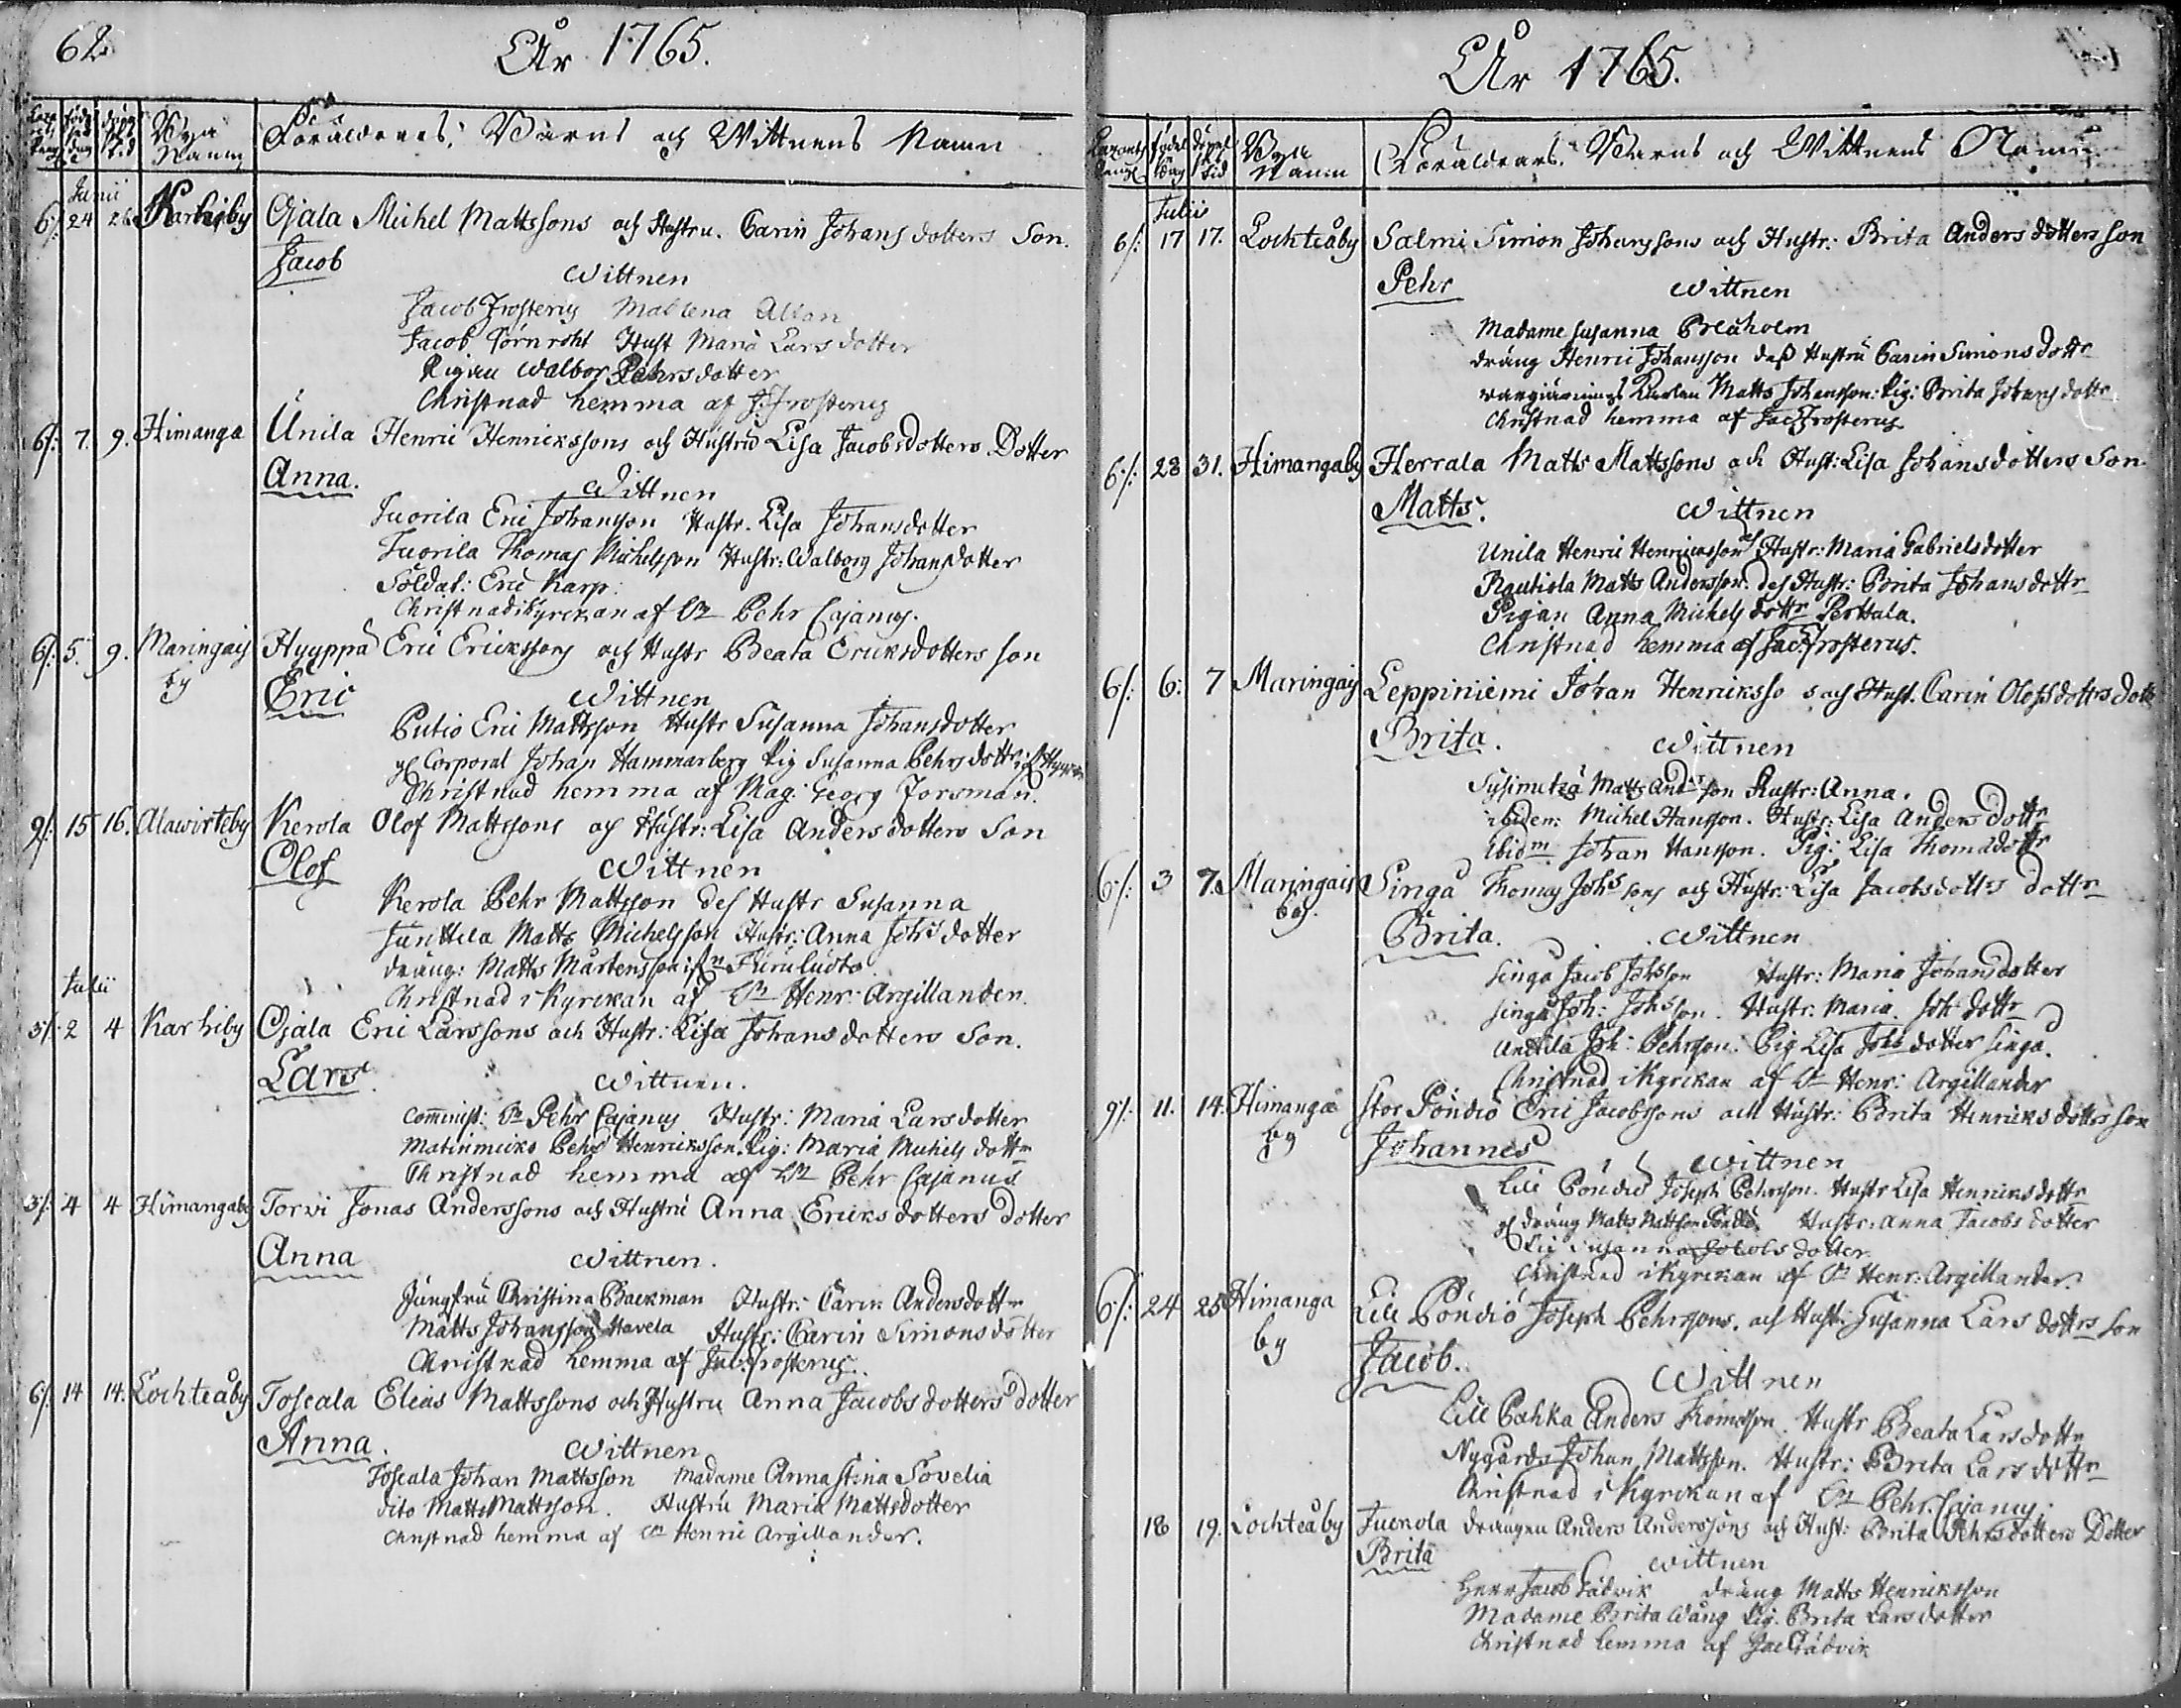 62
År 1765.
Bya Namn
Föräldrars, Barns och Wittnens Namn
Junii
6/: 24 26 Karhiby Ojala Michel Mattssons och Hustru. Carin Johans dotters Son.
Jacob
Wittnen
Jacob Frosterus Mallena
Jacob Hust Maria Lars dotter
Pigan Walbor Pehrsdotter
Christnad hemma af J. Frosterus
6/: 7. 9. Himanga Unila Henric Henrickssons och Hustru Lisa Jacobsdotters Dotter
Anna.
Wittnen
Juorila Eric Johansson Hustr. Lisa Johansdotter
Juorila Thomas Michelsson Hustr: Walborg Johansdotter
Soldat: Eric Karp.
Christnad i Kyrckan af Hr Pehr Cajanus.
6/: 5. 9. Maringais by Hyyppä Eric Erickssons och Hustr Beata Ericksdotters son
Eric
Wittnen
Putio Eric Mattsson Hustr Susanna Johansdotter
Corporal Johan Hammarberg Pig Susanna Pehrsdottr
Christnad hemma af Mag: Georg Forsman.
9/: 15 16. Alawirteby Kerola Olof Mattssons och Hustr: Lisa Anders dotters Son
Olof
Wittnen
Kerola Pehr Mattsson des Hustr Susanna
Junttila Matts Michelsson Hustr: Anna Johs dotter
dräng: Matts Mårtensson
Christnad i Kyrckan af Hr Henr: Argillander.
Julii
5/: 2 4 Karhiby Ojala Eric Larssons och Hustr: Lisa Johans dotters Son.
Lars.
Wittnen.
Comminist: Hr Pehr Cajanus Hustr: Maria Larsdotter
Matinmicko Pehr Henricksson. Pig: Maria Michels dottr
Christnad hemma af Hr Pehr Cajanus
3/: 4 4 Himangaby Torvi Jonas Anderssons och Hustru Anna Ericks dotters dotter
Anna
Wittnen.
Jungfru Christina Backman Hustr: Carin Andersdottr
Matts Johansson Havela Hustr: Carin Simons dotter
Christnad hemma af Jac: Frosterus.
6/: 14 14. Lochteåby Toscala Elias Mattssons och Hustru Anna Jacobs dotters dotter
Anna.
Wittnen
Toscala Johan Mattsson Madame Anna Stina Sovelia
dito Matts Mattsson. Hustru Maria Mattsdotter
Christnad hemma af Hr Henric Argillander.
År 1765.
Bya Namn
Föräldrars. Barns och Wittnens Namn
Julii
6/: 17 17. Lochteåby Salmi Simon Johanssons och Hustr: Brita Anders dotters son
Pehr
Wittnen
Madame Susanna
dräng Henric Johansson dess Hustru Carin Simons dottr
Matts Johansson: Pig: Brita Johans dottr
Christnad hemma af Jac: Frosterus
6/: 28 31. Himangaby Herrala Matts Mattssons och Hust: Lisa Johansdotters Son
Matts.
Wittnen
Unila Henric Henricksson Hustr: Maria Gabrielsdotter
Rautiola Matts Andersson des Hustr: Brita Johansdottr
Pigan Anna Michels dottr Perttula.
Christnad hemma af Jac: Frosterus.
6/: 6. 7 Maringais Leppiniemi Johan Henricksso s och Hust. Carin Olofsdotters dott
Brita.
Wittnen
Matts And son Hustr: Anna.
ibidem: Michel Hansson. Hustr: Lisa Anders dottr
Ibidm Johan Hansson. Pig: Lisa Thomædottr
6/: 3 7. Maringais Singa Thomas Johs sons och Hustr: Lisa Jacobsdotters dottr
Brita.
Wittnen
Singa Jacob Johsson Hustr: Maria Johansdotter
Singa Joh: Johsson. Hustr: Maria. Joh dottr
Anttila Joh: Pehrsson. Pig Lisa Johs dotter Singa.
Christnad i Kyrckan af Hr Henr: Argillander
9/: 11. 14. Himanga by Stor Pöndiö Eric Jacobssons och Hustr: Brita Henricks dotters son
Johannes
Wittnen
Lill Pöndiö Joseph Pehrsson. Hustr Lisa Henricksdottr
dräng Matts Mattsson Pöndiö. Hustr: Anna Jacobs dotter
Susanna Jacobs dotter
Christnad i Kyrckan af Hr Henr: Argillander.
6/: 24 25 Himanga by Lill Pöndiö Joseph Pehrssons. och Hust: Susanna Lars dottrs son
Jacob.
Wittnen
Lill Pahka Anders Thomasson. Hustr Beata Larsdottr
Nygårds Johan Mattsson. Hustr: Brita Lars dottr
Christnad i Kyrckan af Hr Pehr. Cajanus.
18 19. Lochteåby Juenola drängen Anders Anderssons och Hust: Brita Pehrsdotters Dotter
Brita
Wittnen
Herr Jacob dräng Matts Henricksson
Madame Brita Wång Pig. Brita Larsdotter
Christnad hemma af